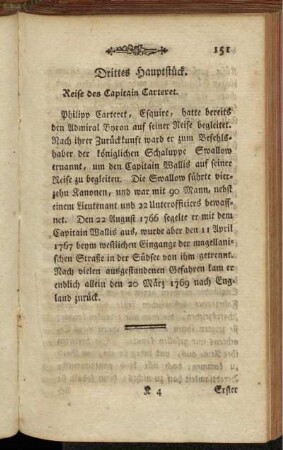 151
Drittes Hauptstück.
Reise des Capitain Carteret.
Philipp Carteret, Esquire, hatte bereits
den Admiral Byron auf seiner Reise begleitet.
Nach ihrer Zurückkunft ward er zum Befehls-
haber der königlichen Schaluppe Swallow
ernannt, um den Capitain Wallis auf seiner
Reise zu begleiten. Die Swallow führte vier-
zehn Kanonen, und war mit 90 Mann, nebst
einem Lieutenant und 22 Unterofficiers bewaff-
net. Den 22 August 1766 segelte er mit dem
Capitain Wallis aus, wurde aber den 11 April
1767 beym westlichen Eingange der magellani-
schen Straße in der Südsee von ihm getrennt.
Nach vielen ausgestandenen Gefahren kam er
endlich allein den 20 März 1769 nach Eng-
land zurück.
K 4 Erster